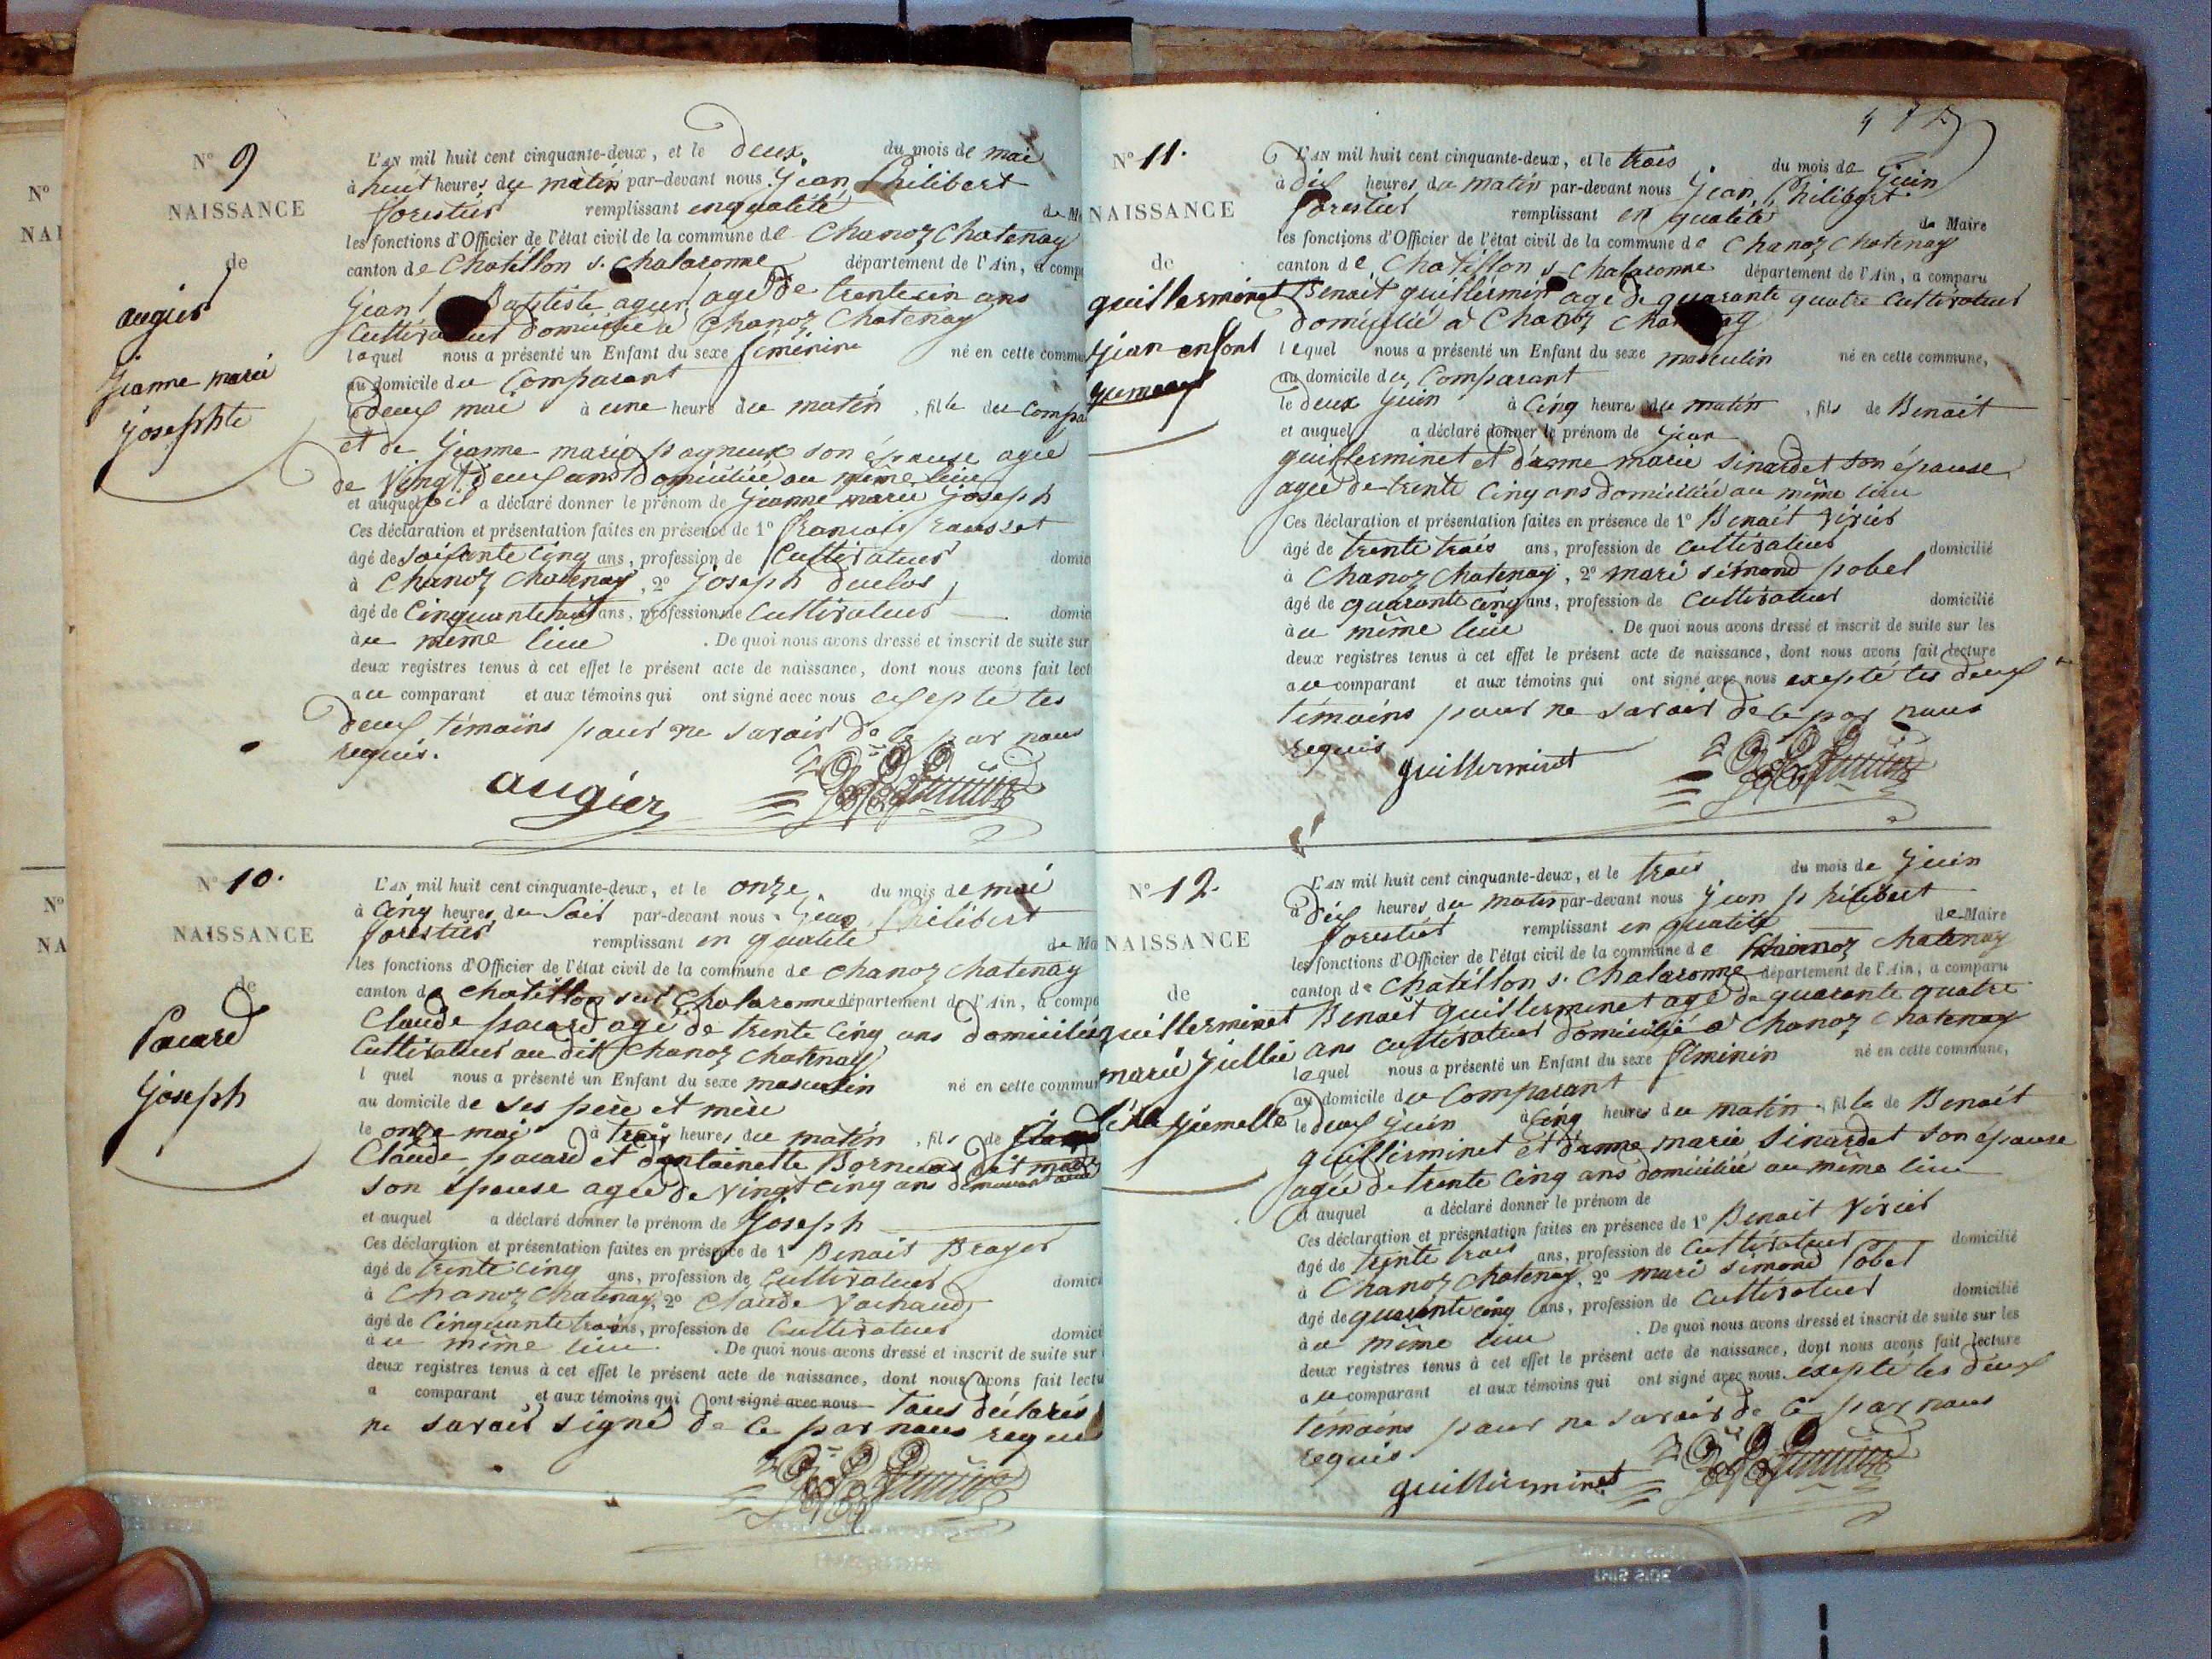 N° 9
NAISSANCE
de
augier
jeanne marie
josephte
L'AN mil huit cent cinquante-deux, et le deux du mois de mai
à huit heures du matin par-devant nous jean philibert
forestier remplissant en qualité de M
les fonctions d'Officier de l'état civil de la commune de Chanoz Chatenay
canton de Chatillon s. chalaronne département de l'Ain, a comp
jean Baptiste agé de trente ans
Cultivateur domicilié à Chanoz Chatenay
lequel nous a présenté un Enfant du sexe féminin né en cette commu
au domicile du Comparant
le deux mai à une heure du matin, fille du Compa
et de jeanne marie pagneux son épouse agée
de vingt deux ans domiciliée au même lieu
et auquel il a déclaré donner le prénom de jeanne marie joseph
Ces déclaration et présentation faites en présence de 1° françois rousset
âgé de soixante cinq ans, profession de Cultivateur domic
à Chanoz Chatenay, 2° joseph duclos
âgé de Cinquante huit ans, profession de Cultivateur domic
au même lieu . De quoi nous avons dressé et inscrit de suite sur
deux registres tenus à cet effet le présent acte de naissance, dont nous avons fait lect
au comparant et aux témoins qui ont signé avec nous excepté les
deux témoins pour ne savoir de ce par nous
requis.
augier
N° 10.
NAISSANCE
de
Pacard
joseph
L'AN mil huit cent cinquante-deux, et le onze du mois de mai
à cinq heures du soir par-devant nous jean philibert
forestier remplissant en qualité de Ma
les fonctions d'Officier de l'état civil de la commune de chanoz chatenay
canton de chatillon sur Chalaronne département de l'Ain, a compa
Claude pacard agé de trente cinq ans domicilié
Cultivateur au dit Chanoz Chatenay
l quel nous a présenté un Enfant du sexe masculin né en cette commun
au domicile de ses père et mère
le onze mai à trois heures du matin, fils de
Claude pacard et dantoinette
son épouse agée de vingt cinq ans
et auquel a déclaré donner le prénom de joseph
Ces déclaration et présentation faites en présence de 1° Benoit Brager
âgé de trente cinq ans, profession de Cultivateur domici
à Chanoz Chatenay, 2° Claude Vachaud
âgé de Cinquante trois ans, profession de Cultivateur domici
au même lieu . De quoi nous avons dressé et inscrit de suite sur
deux registres tenus à cet effet le présent acte de naissance, dont nous avons fait lectu
a comparant et aux témoins qui ont signé avec nous tous déclarés
ne savoir signé de ce par nous requis
N° 11.
NAISSANCE
de
guillerminet
jean enfant
gumeaux
L'AN mil huit cent cinquante-deux, et le trois du mois de juin
à dix heures du matin par-devant nous jean philibert
forestier remplissant en qualité de Maire
les fonctions d'Officier de l'état civil de la commune de Chanoz Chatenay
canton de Chatillon s. Chalaronne département de l'Ain, a comparu
Benoit guillermin agé de quarante quatre Cultivateur
domicilié à Chanoz
lequel nous a présenté un Enfant du sexe masculin né en cette commune,
au domicile du Comparant
le deux juin à cinq heures du matin, fils de Benoit
et auquel a déclaré donner le prénom de jean
guillerminet et d'anne marie sinardet son épouse
agée de trente cinq ans domiciliée au même lieu
Ces déclaration et présentation faites en présence de 1° Benoit
âgé de trente trois ans, profession de Cultivateur domicilié
à Chanoz Chatenay, 2° mari simond pobel
âgé de quarante cinq ans, profession de Cultivateur domicilié
au même lieu . De quoi nous avons dressé et inscrit de suite sur les
deux registres tenus à cet effet le présent acte de naissance, dont nous avons fait lecture
au comparant et aux témoins qui ont signé avec nous excepté les deux
témoins pour ne savoir de ce par nous
requis
guillerminet
N° 12.
NAISSANCE
de
guillerminet
marie jullie
fille jiemelle
L'AN mil huit cent cinquante-deux, et le trois du mois de juin
à dix heures du matin par-devant nous jean philibert
forestier remplissant en qualité de Maire
les fonctions d'Officier de l'état civil de la commune de Chanoz Chatenay
canton de Chatillon s. Chalaronne département de l'Ain, a comparu
Benoit guillerminet agé de quarante quatre
ans cultivateur domicilié à Chanoz Chatenay
lequel nous a présenté un Enfant du sexe féminin né en cette commune,
au domicile du Comparant
le deux juin à cinq heures du matin, fille de Benoit
guillerminet et d'anne marie Sinardet son épouse
agée de trente cinq ans domiciliée au même lieu
et auquel a déclaré donner le prénom de
Ces déclaration et présentation faites en présence de 1° Benoit
âgé de trente trois ans, profession de Cultivateur domicilié
à Chanoz Chatenay, 2° mari simond Pobel
âgé de quarante cinq ans, profession de Cultivateur domicilié
au même lieu . De quoi nous avons dressé et inscrit de suite sur les
deux registres tenus à cet effet le présent acte de naissance, dont nous avons fait lecture
au comparant et aux témoins qui ont signé avec nous excepté les deux
témoins pour ne savoir de ce par nous
requis.
guillerminet